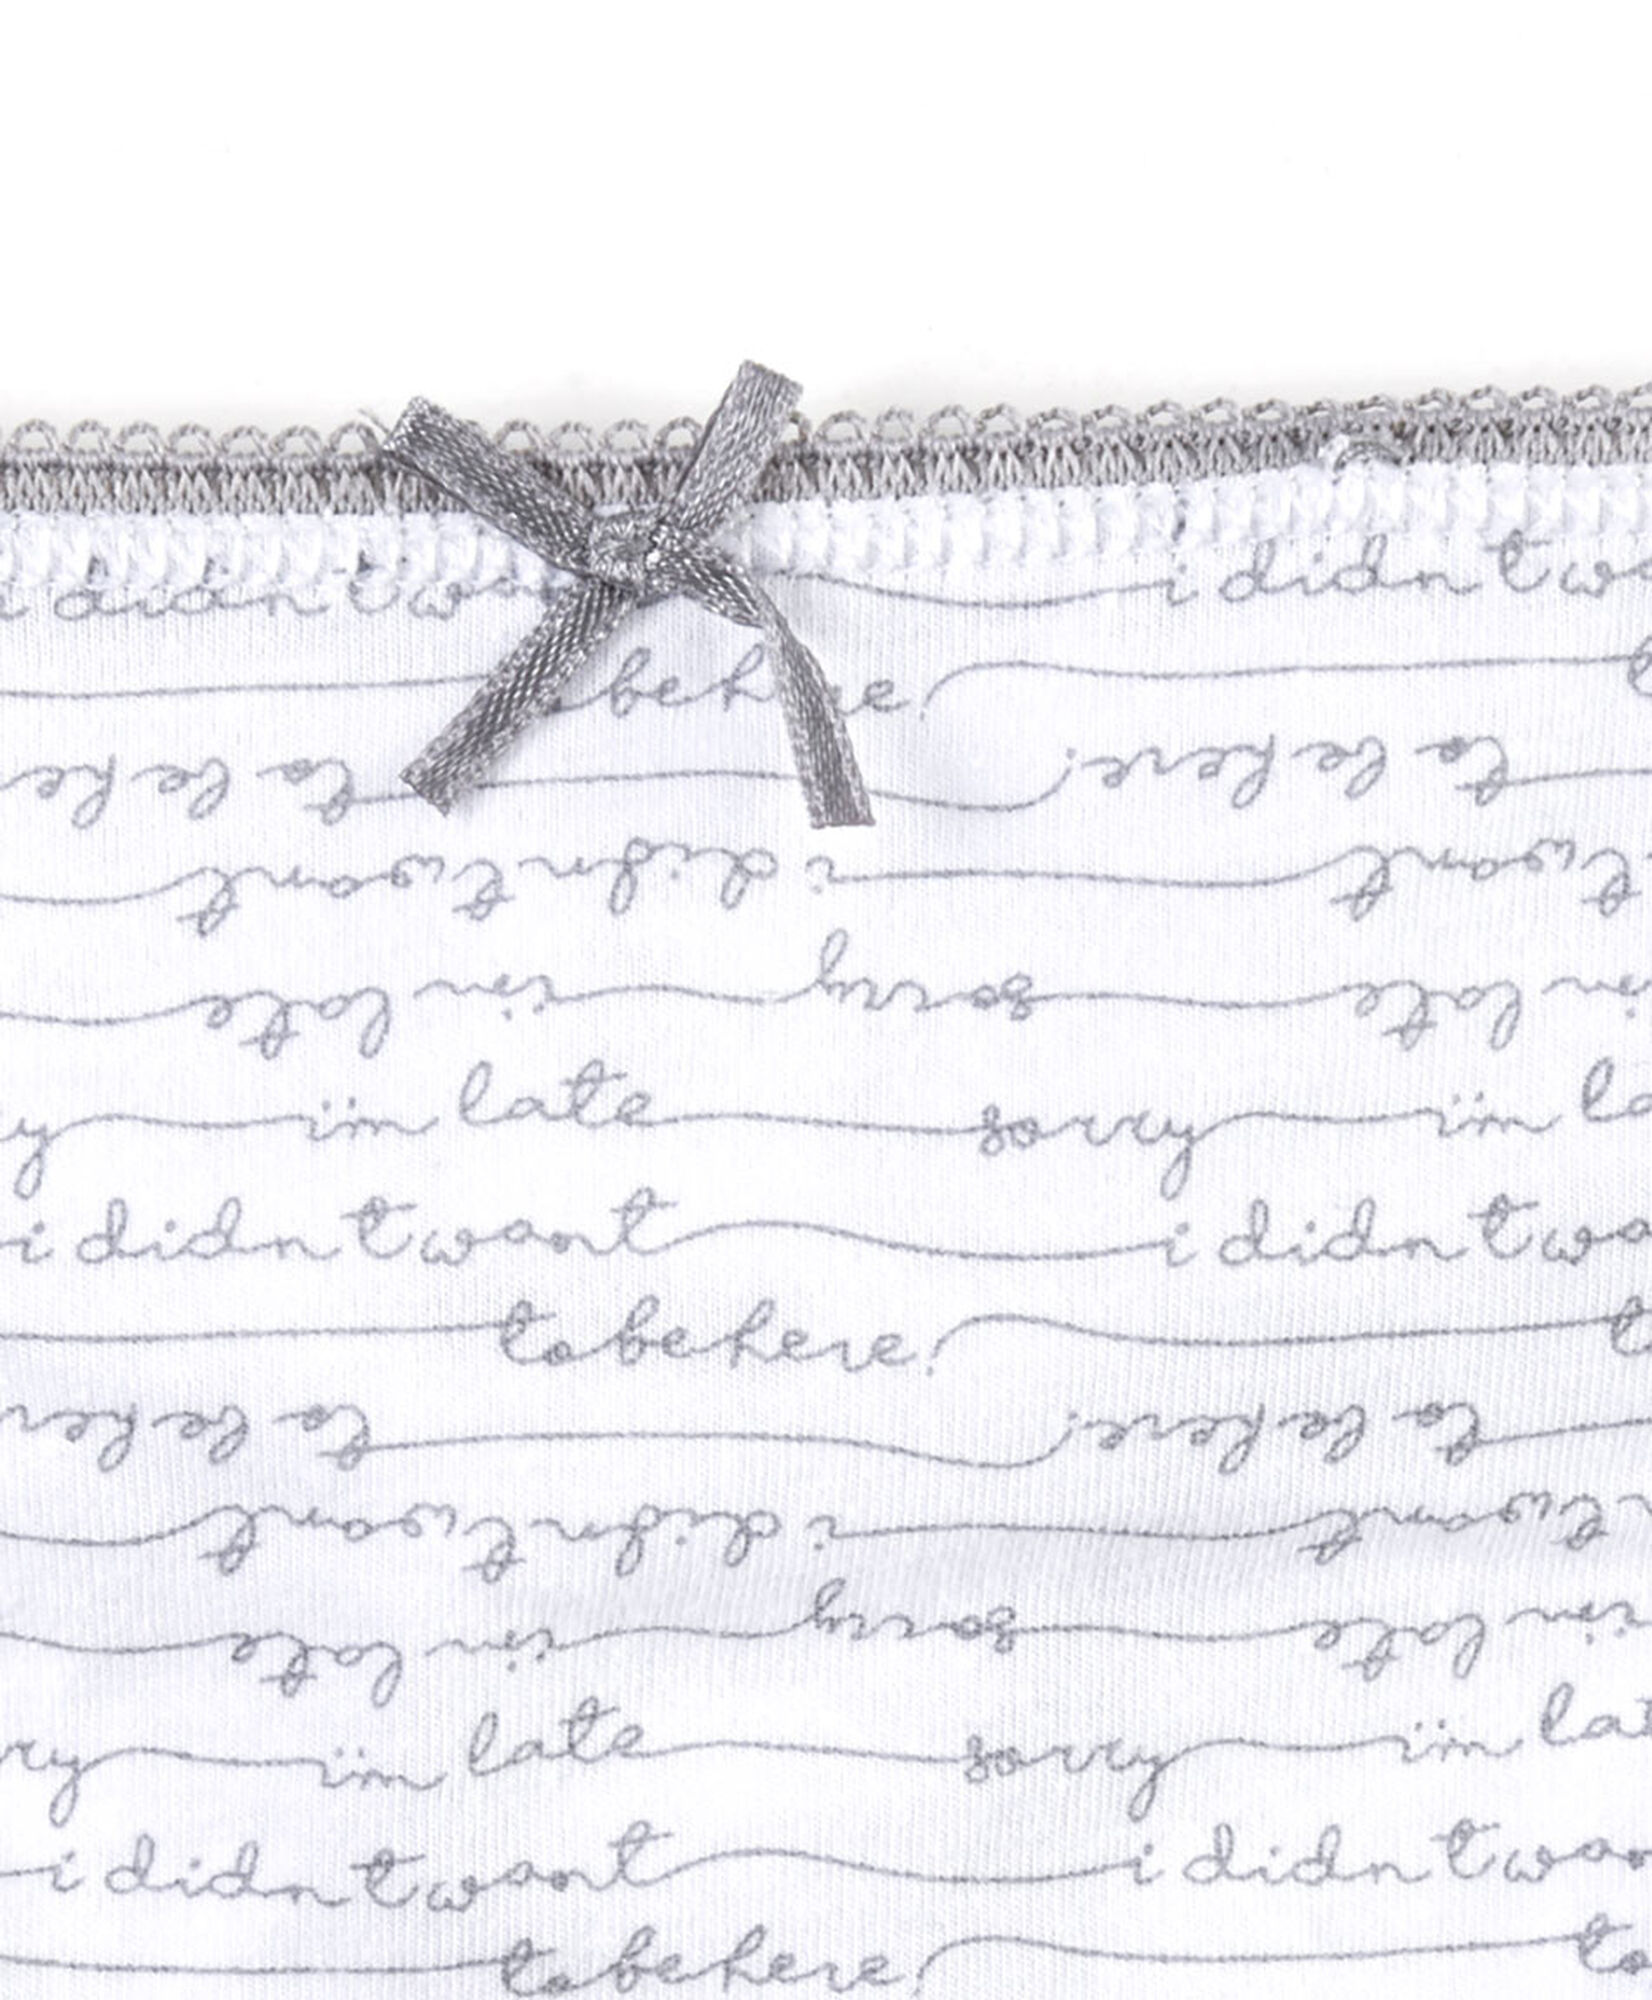 i didn't wa i didn't wa
be h e!
to be here! to be he
want i didn't want
i'm late sorry i'm late
i'm late sorry i'm la
i didn't want i didn't wa
to be here!
to be here! to be her
want i didn't want
i'm late sorry i'm late
ry i'm late sorry i'm lat
i didn't want i didn't wa
to be here! to